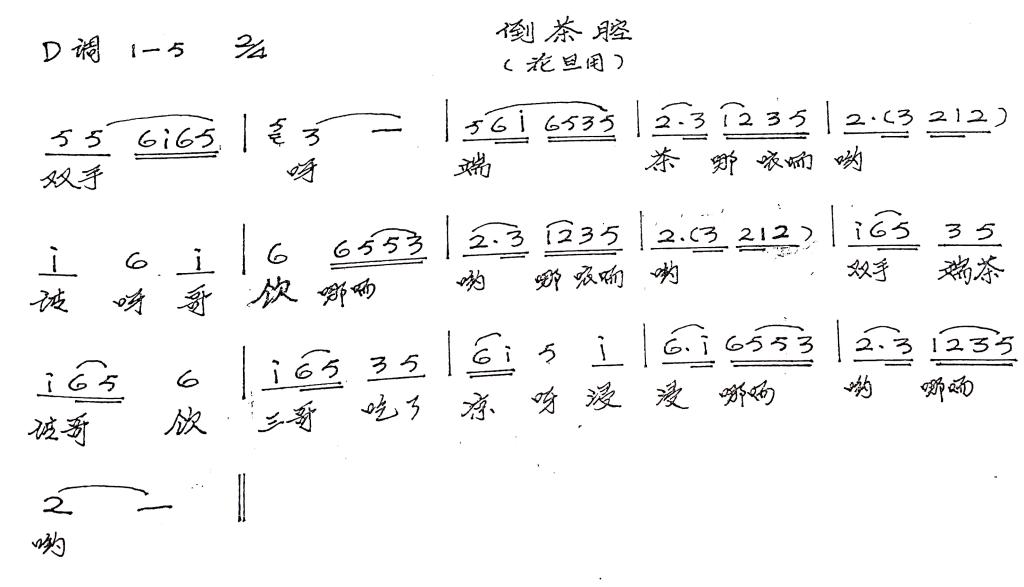 倒茶腔
D调 1—5 2/4
(花旦用)
5 5 6i65 | 5 3 — | 56i 6535 | 2·3 1235 | 2·(3 212)
双手 呀 端 茶 哪 咳哂 哟
i 6 i | 6 6553 | 2·3 1235 | 2·(3 212) | i65 35
呀 哥 饮 哪哂 哟 哪 咳哂 哟 双手 端茶
i65 6 | i65 35 | 6i 5 i | 6·i 6553 | 2·3 1235
哥 饮 三哥 吃了 凉 呀 浸 浸 哪哂 哟 哪哂
2 — ‖
哟